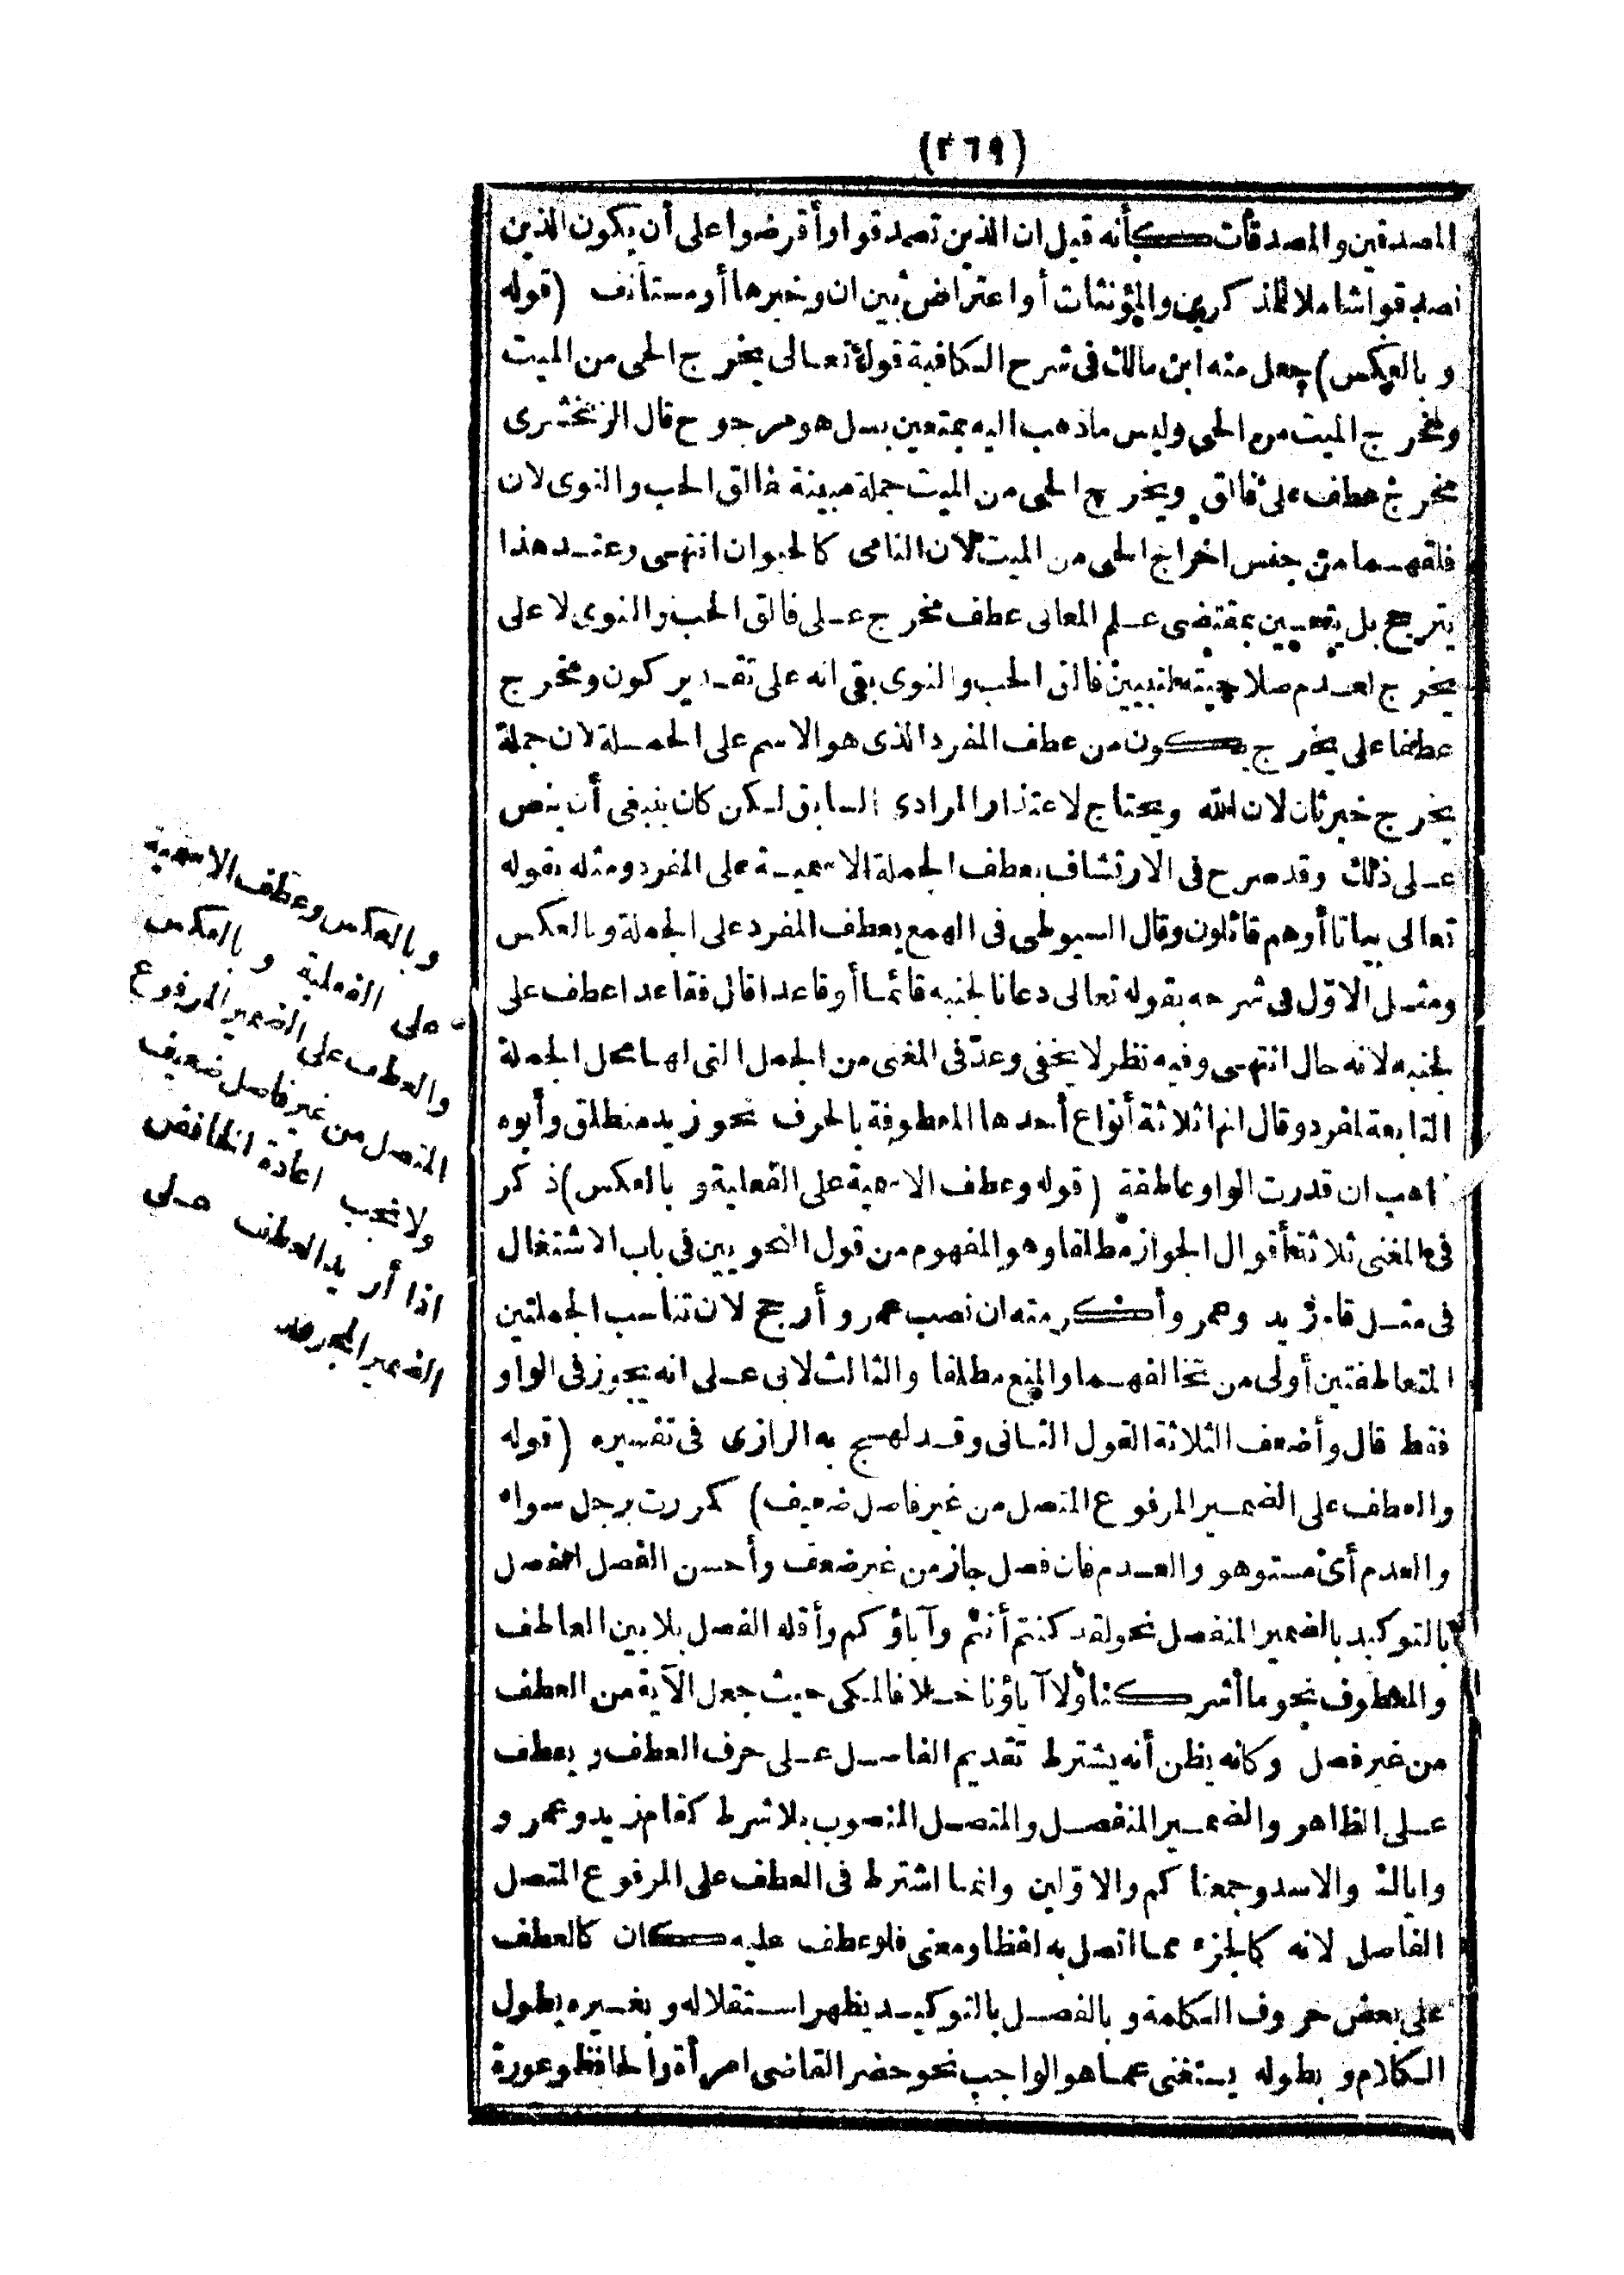 (٢٦٩)
المصدقين والمصدقات كأنه قيل ان الذين تصدقوا وأقرضوا على أن يكون الذين
تصدقوا شاملا للمذكرين والمؤنثات أو اعتراض بين ان وخبرها أو مستأنف (قوله
وبالعكس) جعل منه ابن مالك فى شرح الكافية قوله تعالى يخرج الحى من الميت
ومخرج الميت من الحى وليس ما ذهب اليه بمتعين بل هو مرجوح قال الزمخشرى
مخرج عطف على فالق ويخرج الحى من الميت جملة مبينة فالق الحب والنوى لان
فلقهما من جنس اخراج الحى من الميت لان النامى كالحيوان انتهى وعند هذا
يترجح بل يتعين بمقتضى علم المعانى عطف مخرج على فالق الحب والنوى لا على
يخرج لعدم صلاحيته لتبيين فالق الحب والنوى بقى انه على تقدير كون ومخرج
عطفا على يخرج يكون من عطف المفرد الذى هو الاسم على الجملة لان جملة
يخرج خبر ثان لان الله ويحتاج لاعتذار المرادى السابق لكن كان ينبغى أن ينص
على ذلك وقد صرح فى الارتشاف بعطف الجملة الاسمية على المفرد ومثله بقوله
تعالى بياتا أو هم قائلون وقال السيوطى فى الهمع يعطف المفرد على الجملة وبالعكس
ومثل الاوّل فى شرحه بقوله تعالى دعانا لجنبه قائما أو قاعدا قال فقاعدا عطف على
لجنبه لانه حال انتهى وفيه نظر لا يخفى وعدّ فى المغنى من الجمل التى لها محل الجملة
التابعة لمفرد وقال انها ثلاثة أنواع أحدها المعطوفة بالحرف نحو زيد منطلق وأبوه
ذاهب ان قدرت الواو عاطفة (قوله وعطف الاسمية على الفعلية وبالعكس) ذكر
فى المغنى ثلاثة أقوال الجواز مطلقا وهو المفهوم من قول النحويين فى باب الاشتغال
فى مثل قام زيد وعمر وأكرمته ان نصب عمرو أرجح لان تناسب الجملتين
المتعاطفتين أولى من تخالفهما والمنع مطلقا والثالث لابى على انه يجوز فى الواو
فقط قال وأضعف الثلاثة القول الثانى وقد لهج به الرازى فى تفسيره (قوله
والعطف على الضمير المرفوع المتصل من غير فاصل ضعيف) كمررت برجل سواء
والعدم أى مستو هو والعدم فان فصل جاز من غير ضعف وأحسن الفصل الفصل
بالتوكيد بالضمير المنفصل نحو لقد كنتم أنتم وآباؤكم وأقله الفصل بلا بين العاطف
والمعطوف نحو ما أشركنا ولا آباؤنا خلافا لمكى حيث جعل الآية من العطف
من غير فصل وكانه يظن أنه يشترط تقديم الفاصل على حرف العطف ويعطف
على الظاهر والضمير المنفصل والمتصل المنصوب بلا شرط كقام زيد وعمرو
واياك والاسد وجمعناكم والاوّلين وانما اشترط فى العطف على المرفوع المتصل
الفاصل لانه كالجزء مما اتصل به لفظا ومعنى فلو عطف عليه كان كالعطف
على بعض حروف الكلمة وبالفصل بالتوكيد يظهر استقلاله وبغيره يطول
الكلام وبطوله يستغنى عما هو الواجب نحو حضر القاضى امرأة والحافظو عورة
وبالعكس وعطف الاسمية
على الفعلية وبالعكس
والعطف على الضمير المرفوع
المتصل من غير فاصل ضعيف
ولا تجب اعادة الخافض
اذا أريد العطف على
الضمير المجرور